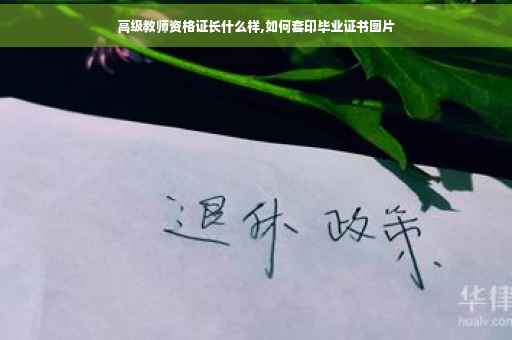 高级教师资格证长什么样,如何套印毕业证书图片
退休 政策
华律
hualv.com